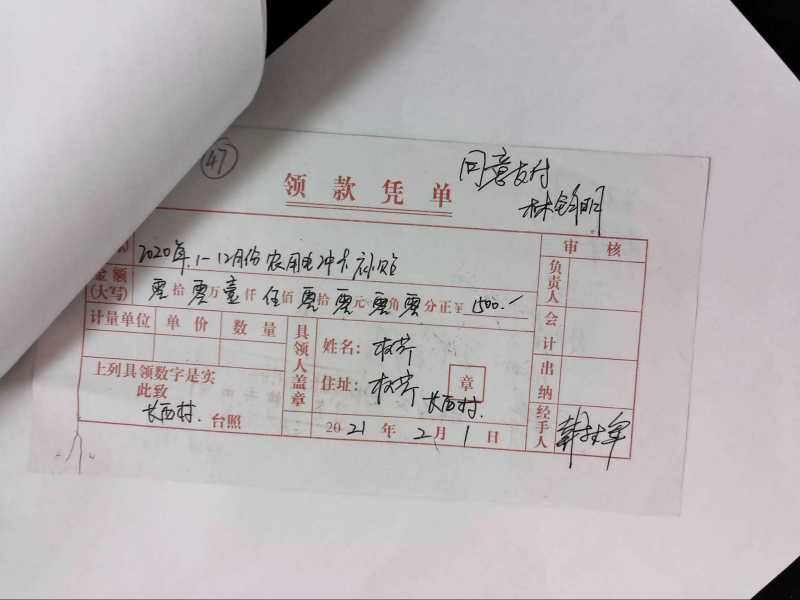 47
同意支付
领款凭单
2020年.1-12月份农用电冲卡补贴
审核
金额(大写) 零拾零万壹仟伍佰零拾零元零角零分正¥1500.-
负责人
计量单位 单价 数量
具领人盖章
姓名:
会计
上列具领数字是实
住址: 长西村.
章
出纳
此致
长西村. 台照
2021年2月1日
经手人